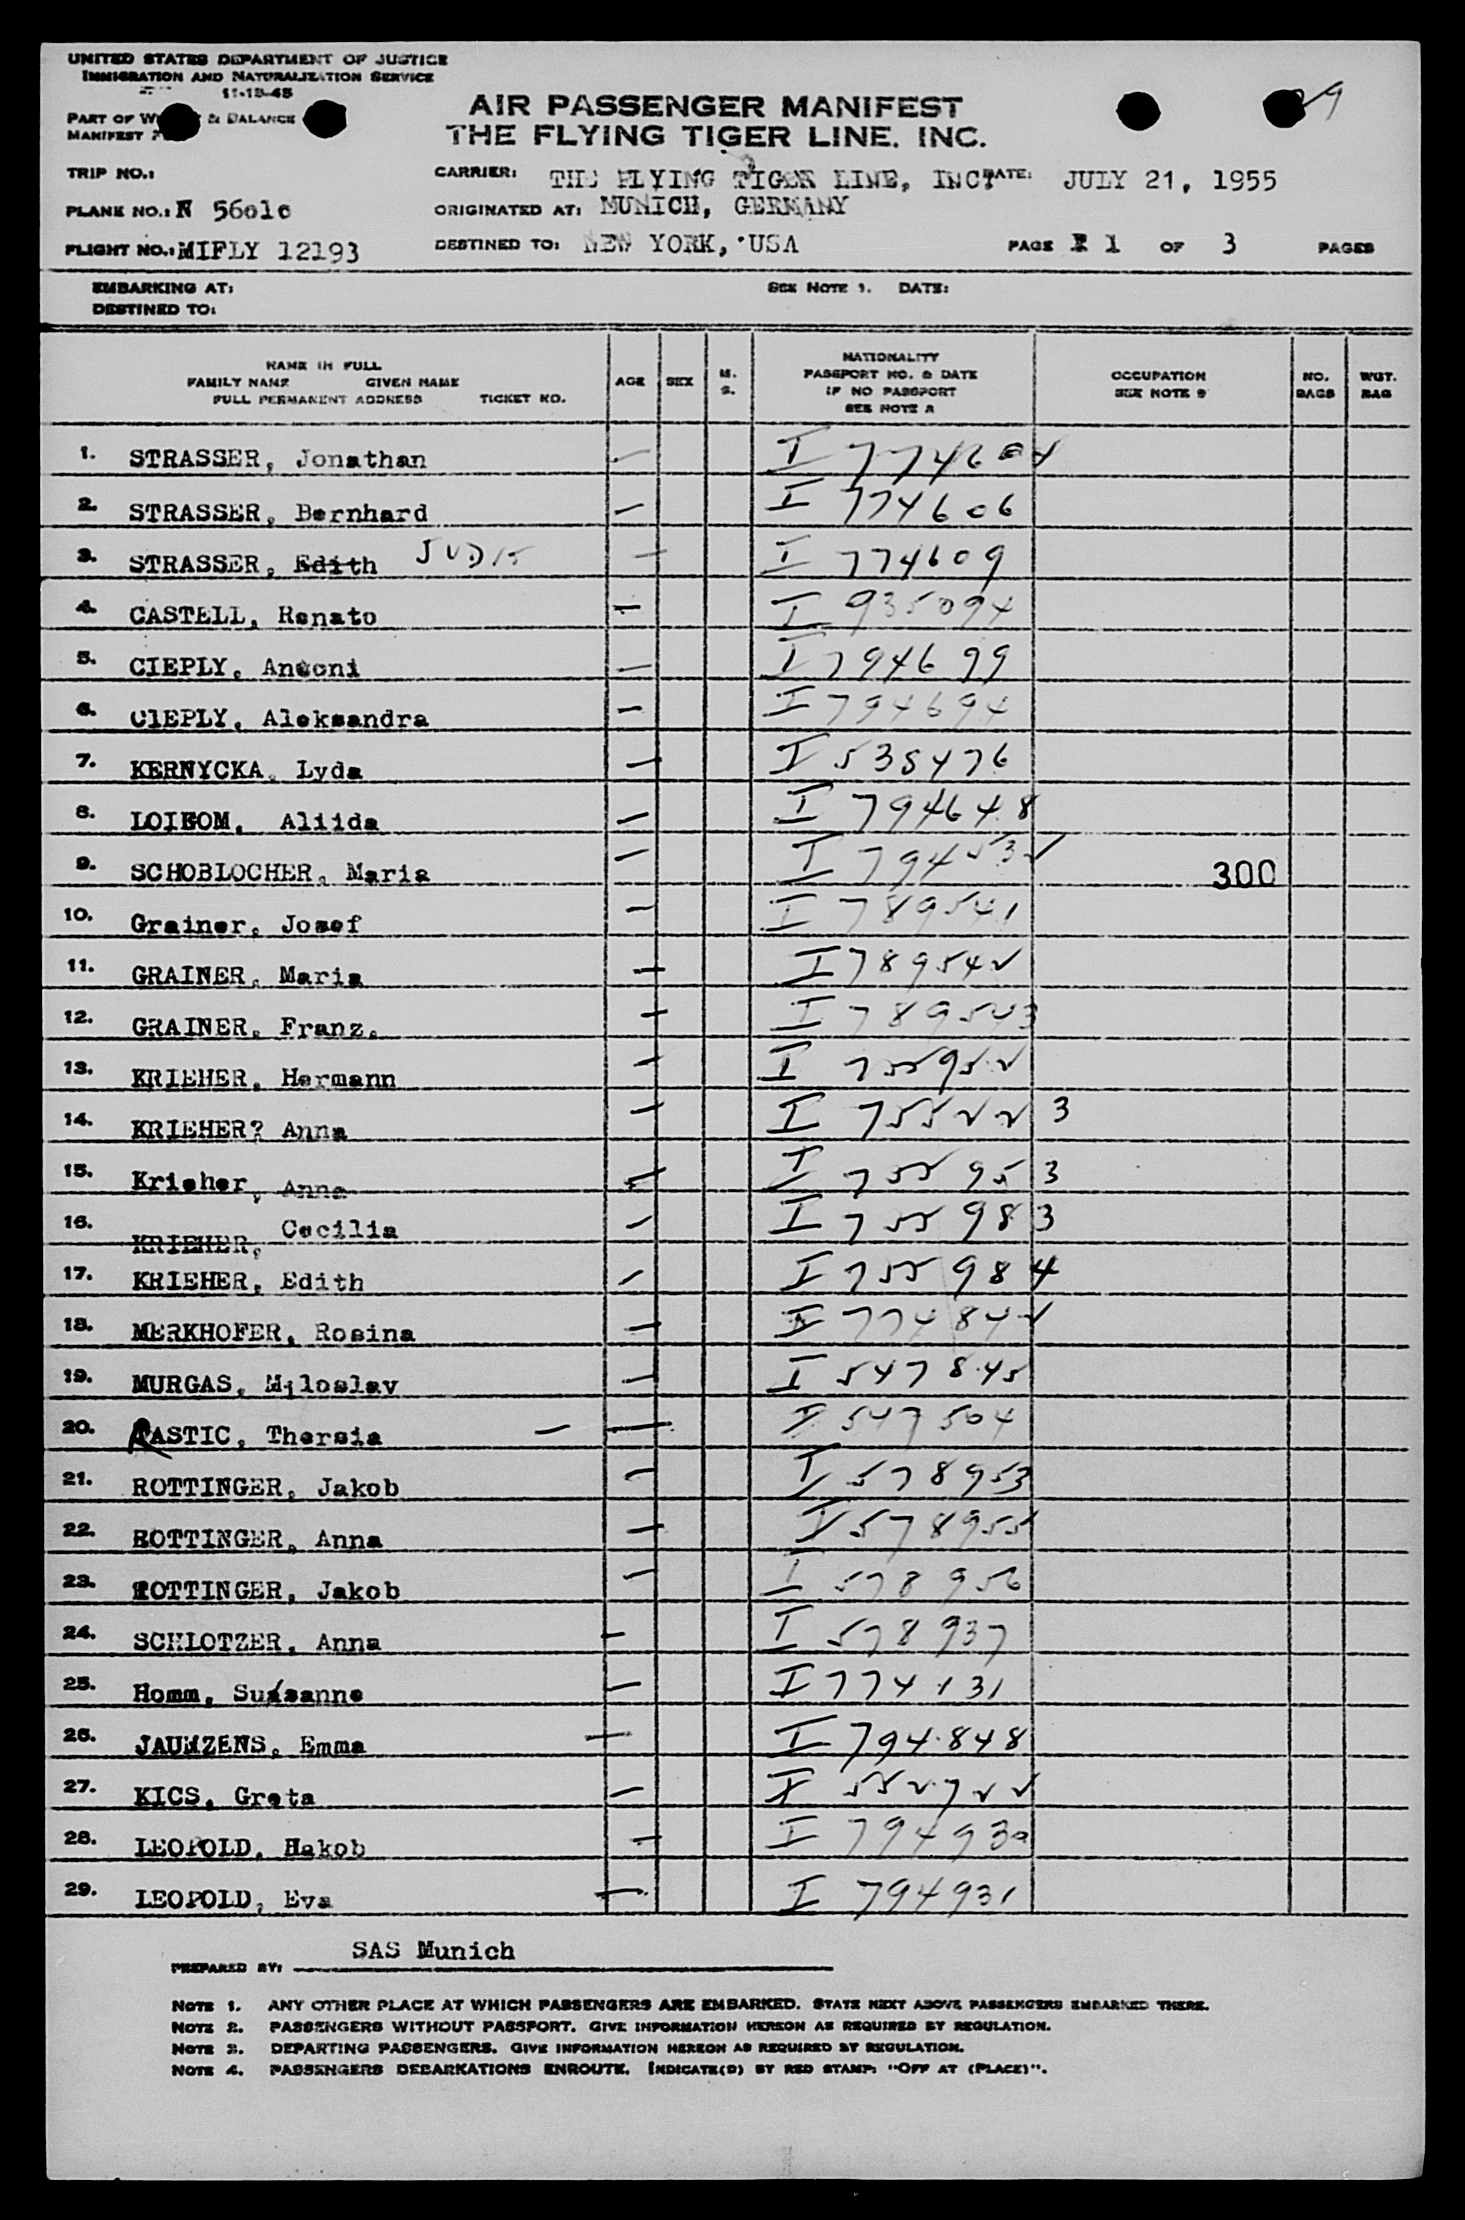 UNITED STATES DEPARTMENT OF JUSTICE
IMMIGRATION AND NATURALIZATION SERVICE
11-13-45
PART OF & BALANCE
MANIFEST
29
AIR PASSENGER MANIFEST
THE FLYING TIGER LINE. INC.
TRIP NO.: CARRIER: THE FLYING TIGER LINE, INC. DATE: JULY 21, 1955
PLANE NO.: N ORIGINATED AT: MUNICH, GERMANY
FLIGHT NO.: MIFLY 12193 DESTINED TO: NEW YORK, USA PAGE 1 OF 3 PAGES
EMBARKING AT: SEE NOTE 1. DATE:
DESTINED TO:
NAME IN FULL
FAMILY NAME GIVEN NAME
FULL PERMANENT ADDRESS TICKET NO.
AGE SEX M. S.
NATIONALITY
PASSPORT NO. & DATE
IF NO PASSPORT
SEE NOTE 2
OCCUPATION
SEE NOTE 3
NO. BAGS
WGT. BAG
1. STRASSER, Jonathan — I 774604
2. STRASSER, Bernhard — I 774606
3. STRASSER, Edith JUDIT — I 774609
4. CASTELL, Renato — I 935094
5. CIEPLY, Antoni — I 794699
6. CIEPLY, Aleksandra — I 794694
7. KERNYCKA, Lyda — I 538476
8. LOIGOM, Aliida — I 794648
9. SCHOBLOCHER, Maria — I 794532 300
10. Grainer, Josef — I 789541
11. GRAINER, Maria — I 789542
12. GRAINER, Franz. — I 789543
13. KRIEHER, Hermann — I 755952
14. KRIEHER? Anna — I 755223
15. Krieher, Anna — I 755953
16. KRIEHER, Cecilia — I 755983
17. KRIEHER, Edith — I 755984
18. MERKHOFER, Rosina — I 774842
19. MURGAS, Miloslav — I 547845
20. RASTIC, Thersia — I 547504
21. ROTTINGER, Jakob — I 578953
22. ROTTINGER, Anna — I 578955
23. ROTTINGER, Jakob — I 578956
24. SCHLOTZER, Anna — I 578937
25. Homm, Susanne — I 774131
26. JAUNZENS, Emma — I 794848
27. KICS, Greta — I 552722
28. LEOPOLD, Hakob — I 794930
29. LEOPOLD, Eva — I 794931
PREPARED BY: SAS Munich
NOTE 1. ANY OTHER PLACE AT WHICH PASSENGERS ARE EMBARKED. STATE NEXT ABOVE PASSENGERS EMBARKED THERE.
NOTE 2. PASSENGERS WITHOUT PASSPORT. GIVE INFORMATION HEREON AS REQUIRED BY REGULATION.
NOTE 3. DEPARTING PASSENGERS. GIVE INFORMATION HEREON AS REQUIRED BY REGULATION.
NOTE 4. PASSENGERS DEBARKATIONS ENROUTE. INDICATE(D) BY RED STAMP: "OFF AT (PLACE)".